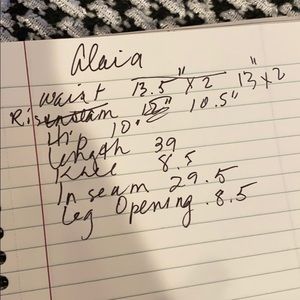 Alaia
waist 13.5" x 2 13" x 2
Rise 10.5"
Hip 10."
Length 39
Knee 8.5
Inseam 29.5
Leg Opening. 8.5